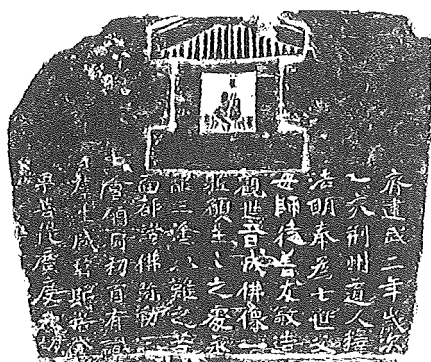 齊建武二年歲次
乙亥荊州道人釋
法明奉為七世父
母師徒善友敬造
觀世音成佛像一
軀願生々之處永
離三塗八難之苦
面都諸佛弥勒三
會願同初首有識
群生咸將斯誓
果菩提廣度一切